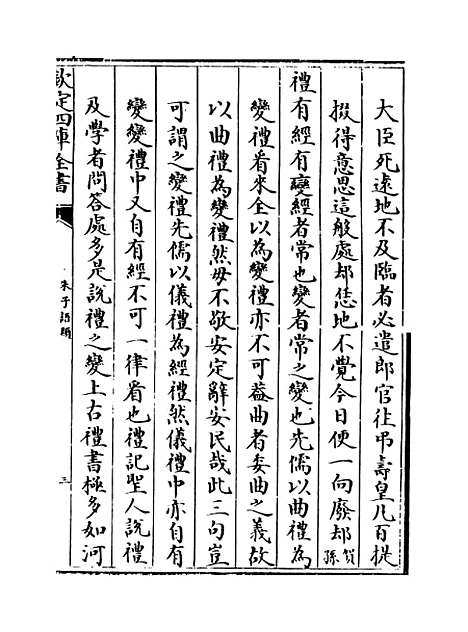 大臣死遠地不及臨者必遣郎官往弔壽皇凡百提
掇得意思這般處却恁地不覺今日便一向廢却賀孫
禮有經有變經者常也變者常之變也先儒以曲禮為
變禮看來全以為變禮亦不可葢曲者委曲之義故
以曲禮為變禮然毋不敬安定辭安民哉此三句豈
可謂之變禮先儒以儀禮為經禮然儀禮中亦自有
變變禮中又自有經不可一律看也禮記聖人說禮
及學者問答處多是說禮之變上古禮書極多如河
欽定四庫全書
朱子語類
三